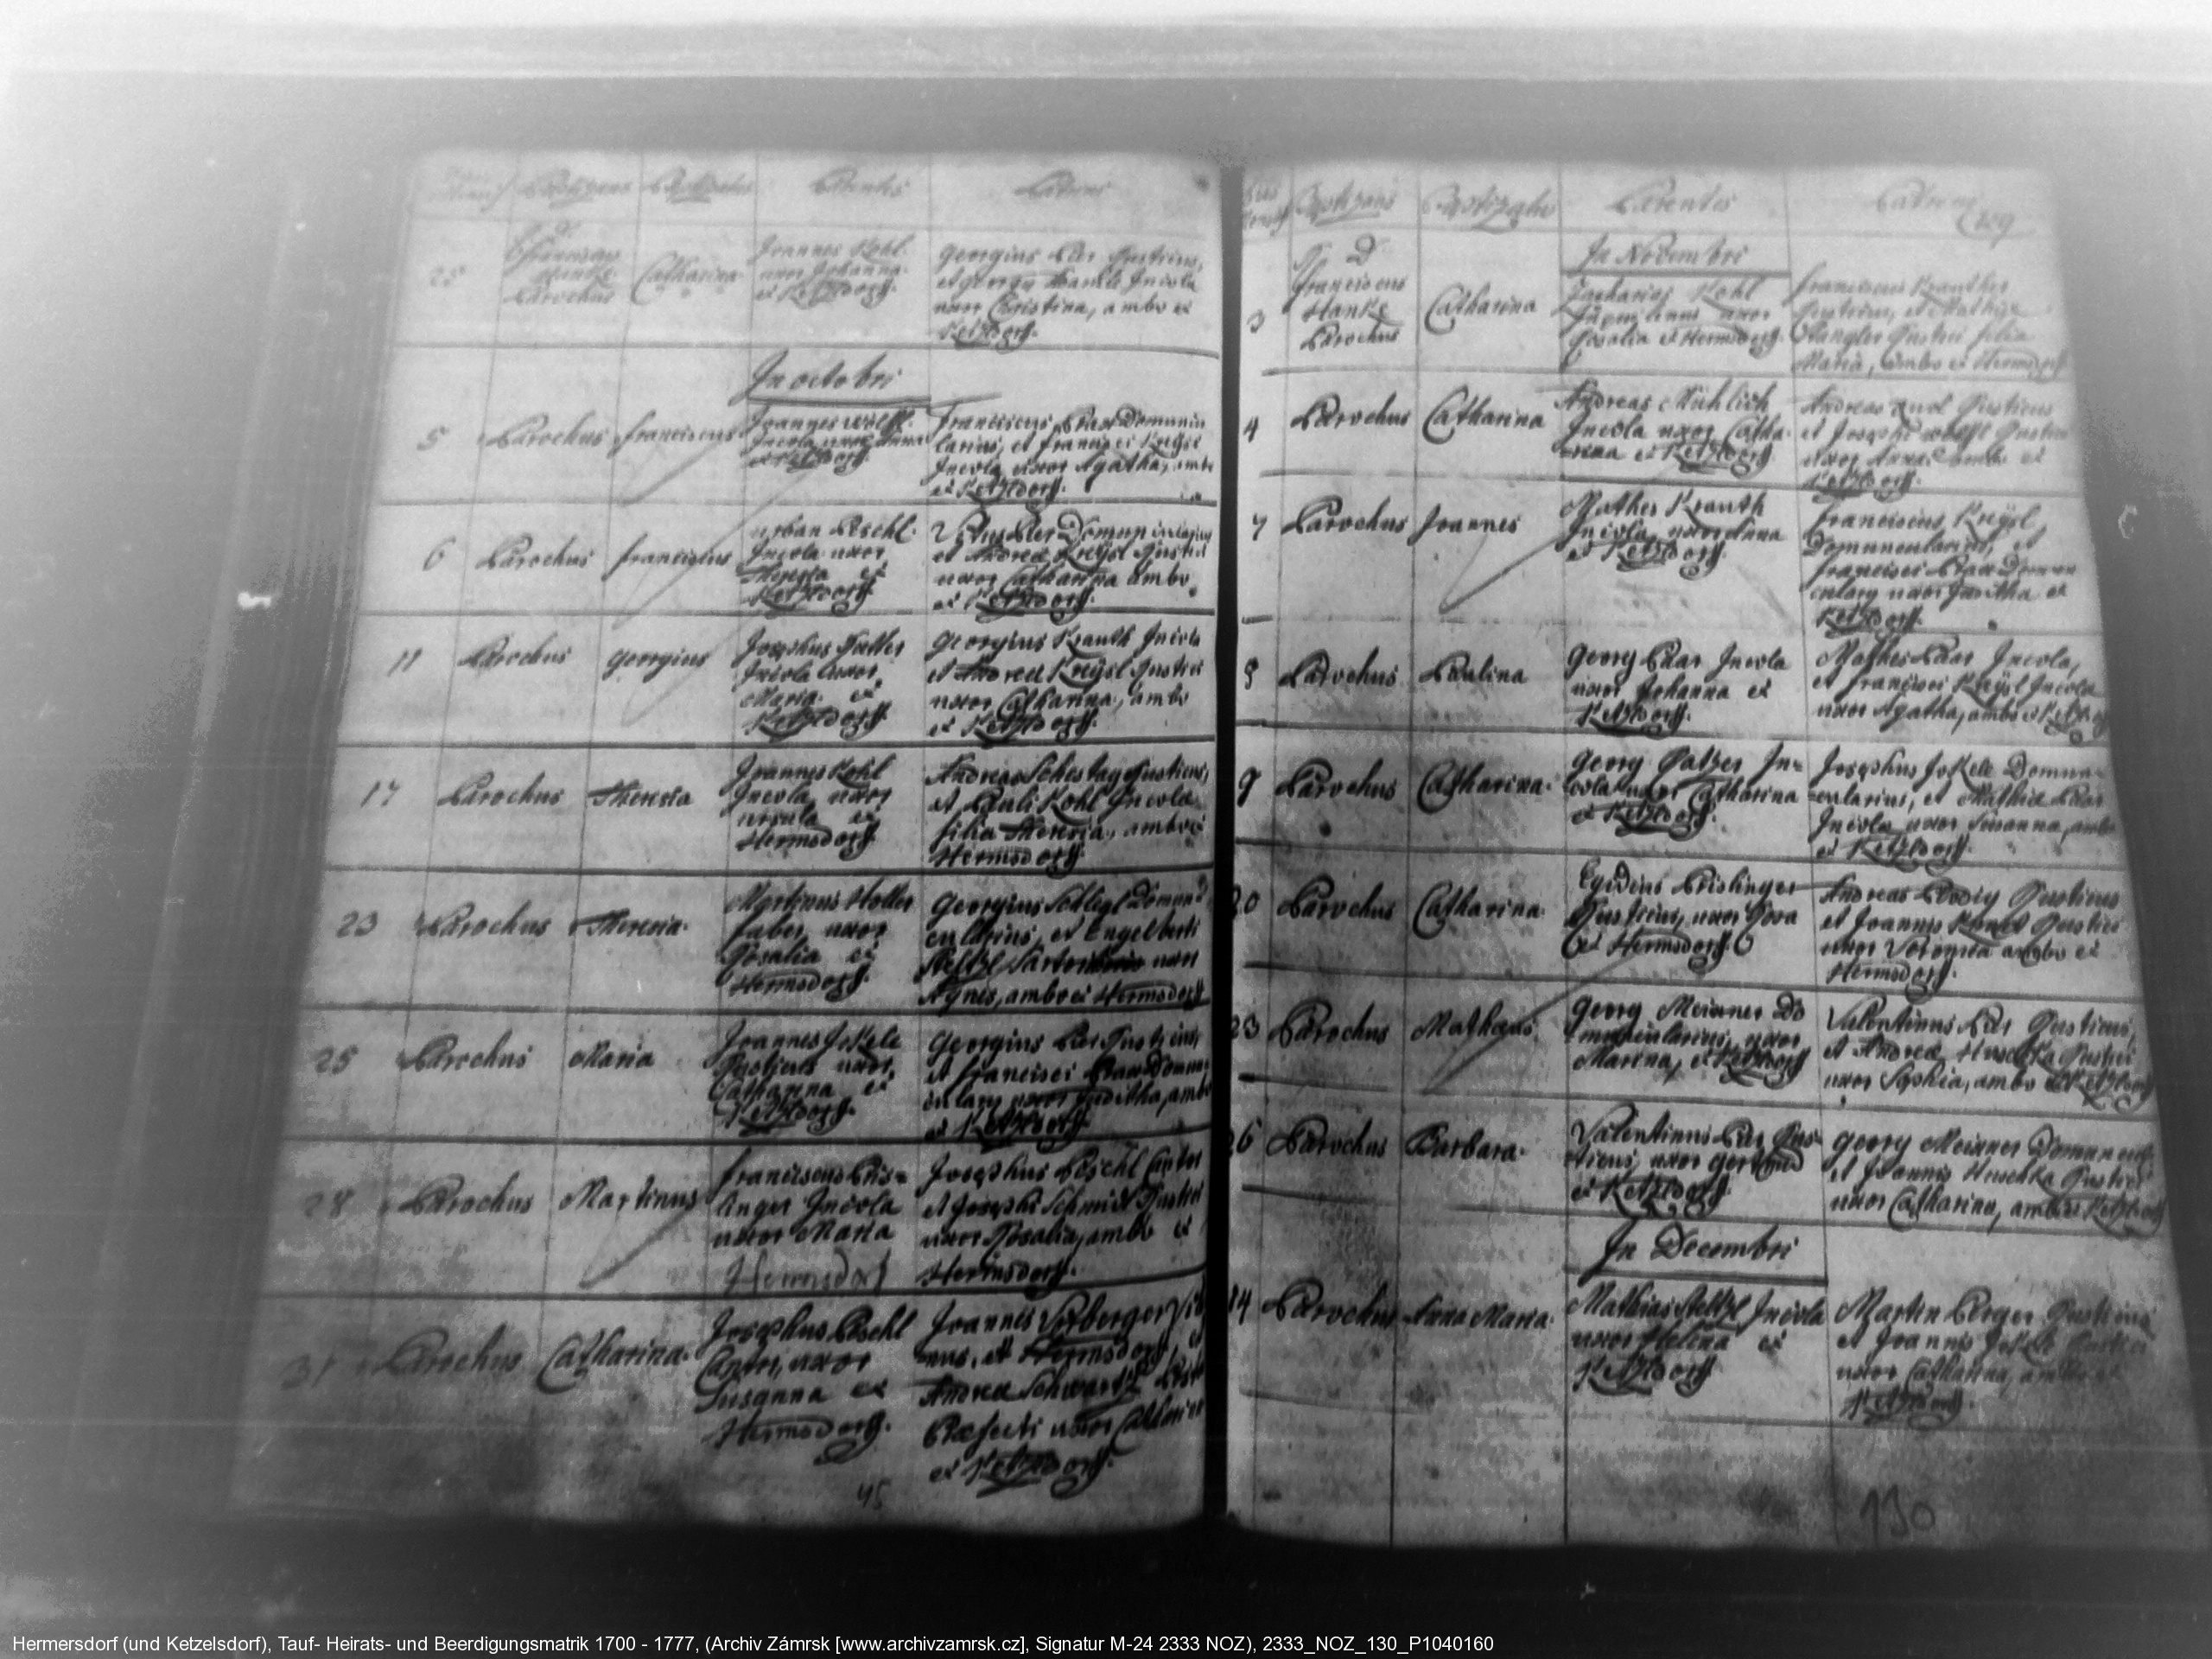 Baptizans Baptizatus Parentes Patrini
25
D
Franciscus
Hanke
Parochus
Catharina
Joannes Kohl
uxor Johanna
ex Ketzldorff.
Georgius Pier Rusticus,
et Georgii Incola
uxor Christina, ambo ex
Ketzldorff.
In octobri
5 Parochus Franciscus
Joannes Wölffl
Incola uxor Anna
ex Ketzldorff
Franciscus Paar Domuncu
larius, et Francisci Kreÿsl
Incola uxor Agatha, ambo
ex Ketzldorff.
6 Parochus Franciscus
Urban Peschl
Incola uxor
Theresia ex
Ketzldorff
Vitus Pier Domuncularius
et Andreæ Kreÿsl Rustici
uxor Catharina ambo
ex Ketzldorff.
11 Parochus Georgius
Josephus
Incola uxor
Maria ex
Ketzldorff
Georgius Krauth Incola
et Andreæ Kreÿsl Rustici
uxor Catharina, ambo
ex Ketzldorff.
17 Parochus Theresia
Joannes Kohl
Incola uxor
Ursula ex
Hermsdorff
Andreas Schestag Rusticus,
et Pauli Kohl Incola
filia Theresia, ambo ex
Hermsdorff
23 Parochus Theresia
Martinus Holler
faber, uxor
Rosalia ex
Hermsdorff.
Georgius Schlegl Domun
cularius, et Engelberti
Steltzl Sartoris uxor
Agnes, ambo ex Hermsdorff
25 Parochus Maria
Joannes Jokele
Rusticus uxor
Catharina ex
Ketzldorff.
Georgius Pier Rusticus
et Francisci Paar Domun
cularii uxor Juditha, ambo
ex Ketzldorff
28 Parochus Martinus
Franciscus Pris=
linger Incola
uxor Maria
Hermsdorf
Josephus Peschl Cantor
et Josephi Schmidt Rustici
uxor Rosalia, ambo ex
Hermsdorff.
31 Parochus Catharina
Josephus Peschl
Cantor, uxor
Susanna ex
Hermsdorff.
Joannes
nus, ex Hermsdorff, et
Andreæ Schwartz
Præfecti uxor Catharina
ex Ketzldorff.
45
Baptizans Baptizatus Parentes Patrini
129
In Novembri
3
D
Franciscus
Hanke
Parochus
Catharina
Zacharias Kohl
uxor
Rosalia ex Hermsdorff.
Franciscus Krauther
Rusticus, et Mathiæ
Stangler Rustici filia
Maria, ambo ex Hermsdorff
4 Parochus Catharina
Andreas Mühlich
Incola uxor Catha-
rina ex Ketzldorff
Andreas Rusticus
et Josephi Wölffl Rustici
uxor Anna ambo ex
Ketzldorff.
7 Parochus Joannes
Mathes Krauth
Incola, uxor Anna
ex Ketzldorff.
Franciscus Kreÿsl
Domuncularius, et
Francisci Paar Domun
cularii uxor Juditha ex
Ketzldorff.
8 Parochus Paulina
Georg Paar Incola
uxor Johanna ex
Ketzldorff.
Mathes Paar Incola,
et Francisci Kreÿsl Incola
uxor Agatha, ambo ex Ketzldorff
9 Parochus Catharina
Georg Patzer In=
cola uxor Catharina
ex Ketzldorff.
Josephus Jokele Domun=
cularius, et Mathiæ Paar
Incola uxor Susanna, ambo
ex Ketzldorff.
20 Parochus Catharina
Egidius Prislinger
Rusticus, uxor Rosa
ex Hermsdorff.
Andreas Rusticus
et Joannis Rustici
uxor Veronica ambo ex
Hermsdorff.
23 Parochus Mathæus
Georg Meixner Do
muncularius, uxor
Marina, ex Ketzldorff
Valentinus Pier Rusticus,
et Andreæ Hruschka Rustici
uxor Sophia, ambo ex Ketzldorff
26 Parochus Barbara
Valentinus Pier Rus=
ticus, uxor Gertrud
ex Ketzldorff.
Georg Meixner Domuncul
et Joannis Hruschka Rustici
uxor Catharina, ambo ex Ketzldorff
In Decembri
14 Parochus Anna Maria
Mathias Steltzl Incola
uxor Helena ex
Ketzldorff
Martin Berger Rusticus
et Joannis Jokele Rustici
uxor Catharina, ambo ex
Ketzldorff.
130
Hermersdorf (und Ketzelsdorf), Tauf- Heirats- und Beerdigungsmatrik 1700 - 1777, (Archiv Zámrsk [www.archivzamrsk.cz], Signatur M-24 2333 NOZ), 2333_NOZ_130_P1040160